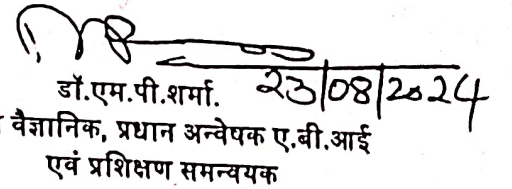 डॉ.एम.पी.शर्मा. 23/08/2024
वैज्ञानिक, प्रधान अन्वेषक ए.बी.आई
एवं प्रशिक्षण समन्वयक